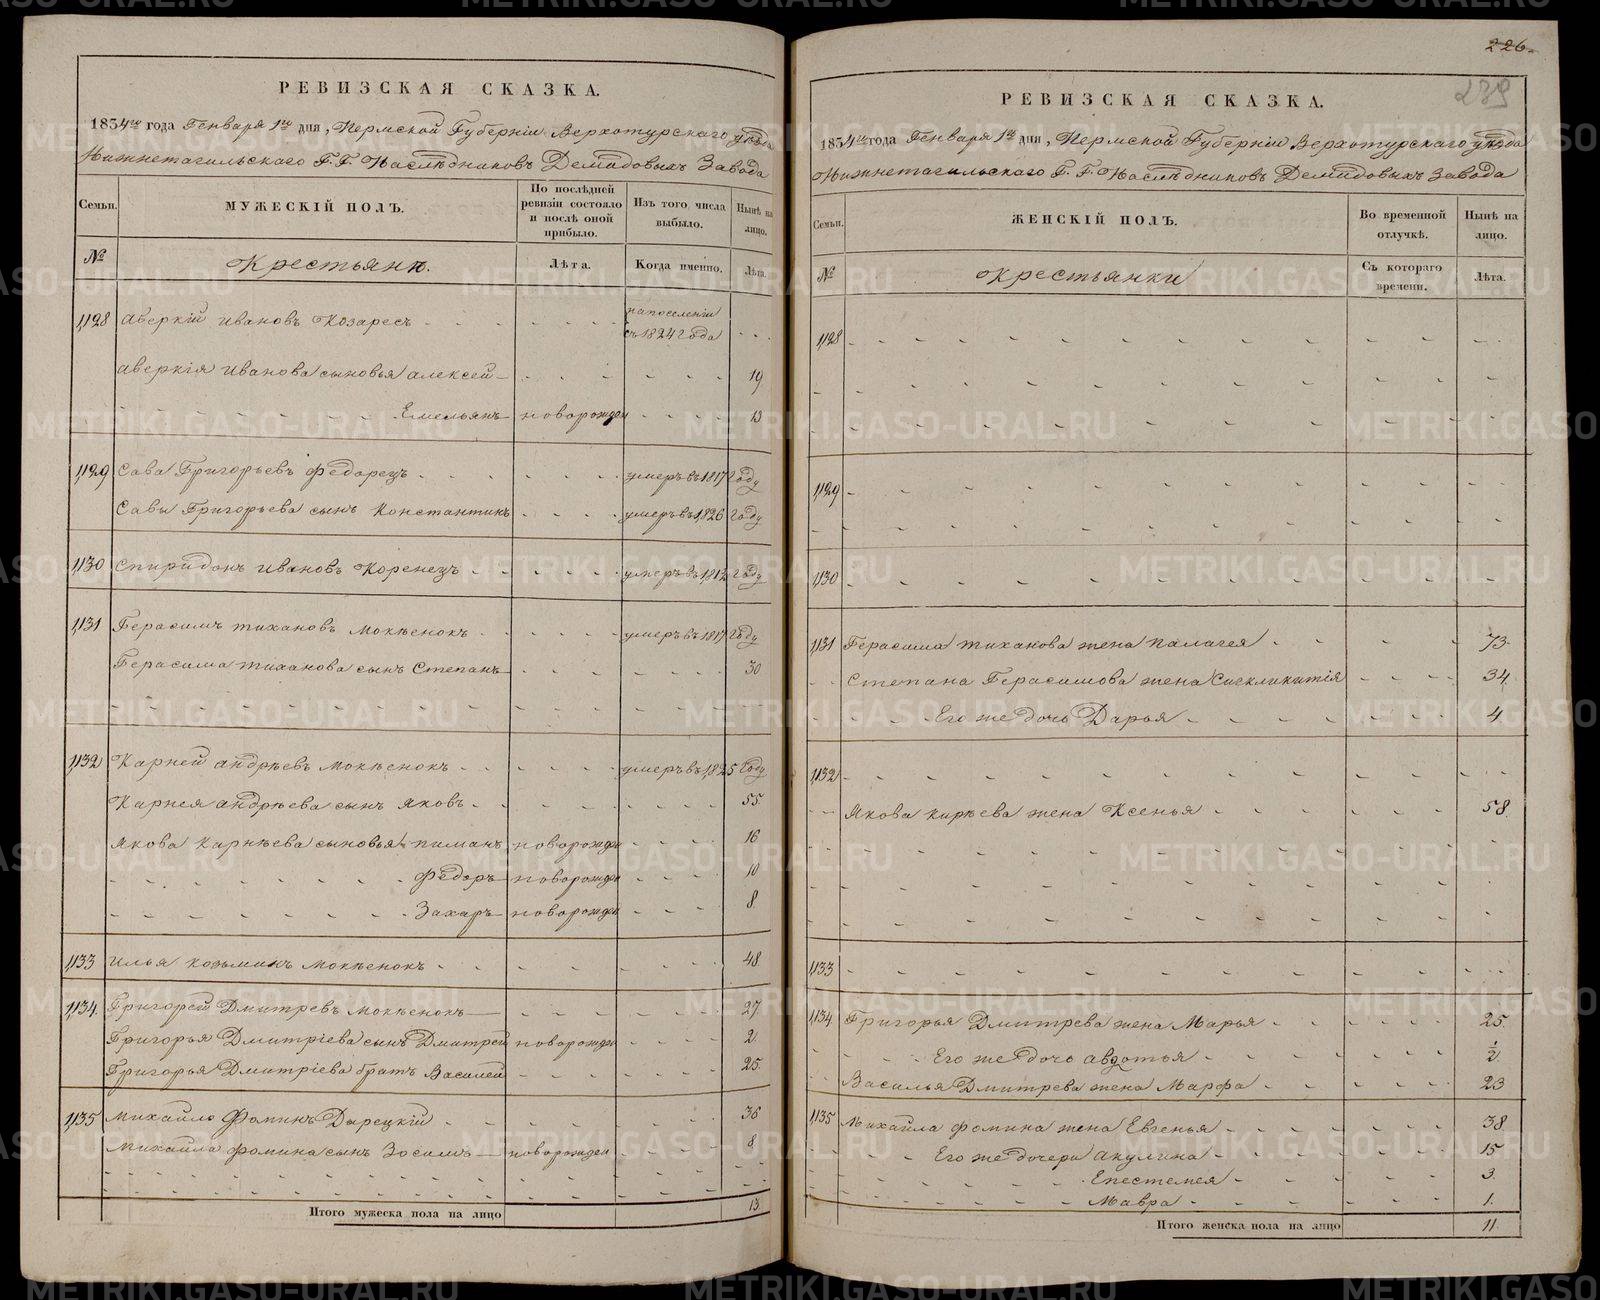 226.
239
РЕВИЗСКАЯ СКАЗКА.
1834го года Генваря 1го дня, Пермской Губерніи Верхотурскаго уѣзда
Нижнетагильскаго Г. Г. Наслѣдниковъ Демидовыхъ Завода
Семьи. МУЖЕСКІЙ ПОЛЪ. По послѣдней ревизіи состояло и послѣ оной прибыло. Изъ того числа выбыло. Нынѣ на лицо.
№ Крестьянѣ. Лѣта. Когда именно. Лѣта.
1128 Аверкій Ивановъ Козаресъ на поселеніи съ 1824 Года
Аверкія Иванова сыновья Алексей 19
Емельянъ новорожден 13
1129 Сава Григорьевъ Федорецъ умеръ въ 1817 Году
Савы Григорьева сынъ Константинъ умеръ въ 1826 Году
1130 Спиридонъ Ивановъ Коренецъ умеръ въ 1812 Году
1131 Герасимъ Тихановъ Мокѣенокъ умеръ въ 1817 Году
Герасима Тиханова сынъ Степанъ 30
1132 Карней Андрѣевъ Мокѣенокъ умеръ въ 1825 Году
Карнея Андрѣева сынъ Яковъ 55
Якова Карнѣева сыновья пиманъ новорожден 16
Федоръ новорожден 10
Захаръ новорожден 8
1133 Илья Козьминъ Мокѣенокъ 48
1134 Григорей Дмитревъ Мокѣенокъ 27
Григорья Дмитріева сынъ Дмитрей новорожден 2
Григорья Дмитріева братъ Василей 25
1135 Михайло Фоминъ Дырецкій 36
Михайла Фомина сынъ Зосимъ новорожден 8
Итого мужеска пола на лицо 13
РЕВИЗСКАЯ СКАЗКА.
1834го года Генваря 1го дня, Пермской Губерніи Верхотурскаго уѣзда
Нижнетагильскаго Г. Г. Наслѣдниковъ Демидовыхъ Завода
Семьи. ЖЕНСКІЙ ПОЛЪ. Во временной отлучкѣ. Нынѣ на лицо.
№ Крестьянки Съ котораго времени. Лѣта.
1128
1129
1130
1131 Герасима Тиханова жена Палагея 73
Степана Герасимова жена 34
Его же дочь Дарья 4
1132
Якова Кирѣева жена Ксенья 58
1133
1134 Григорья Дмитрева жена Марья 25
Его же дочь Авдотья 1/2
Василья Дмитрева жена Марфа 23
1135 Михайла Фомина жена Евгенья 38
Его же дочери Акулина 15
Епестемея 3
Мавра 1
Итого женска пола на лицо 11
METRIKI.GASO-URAL.RU